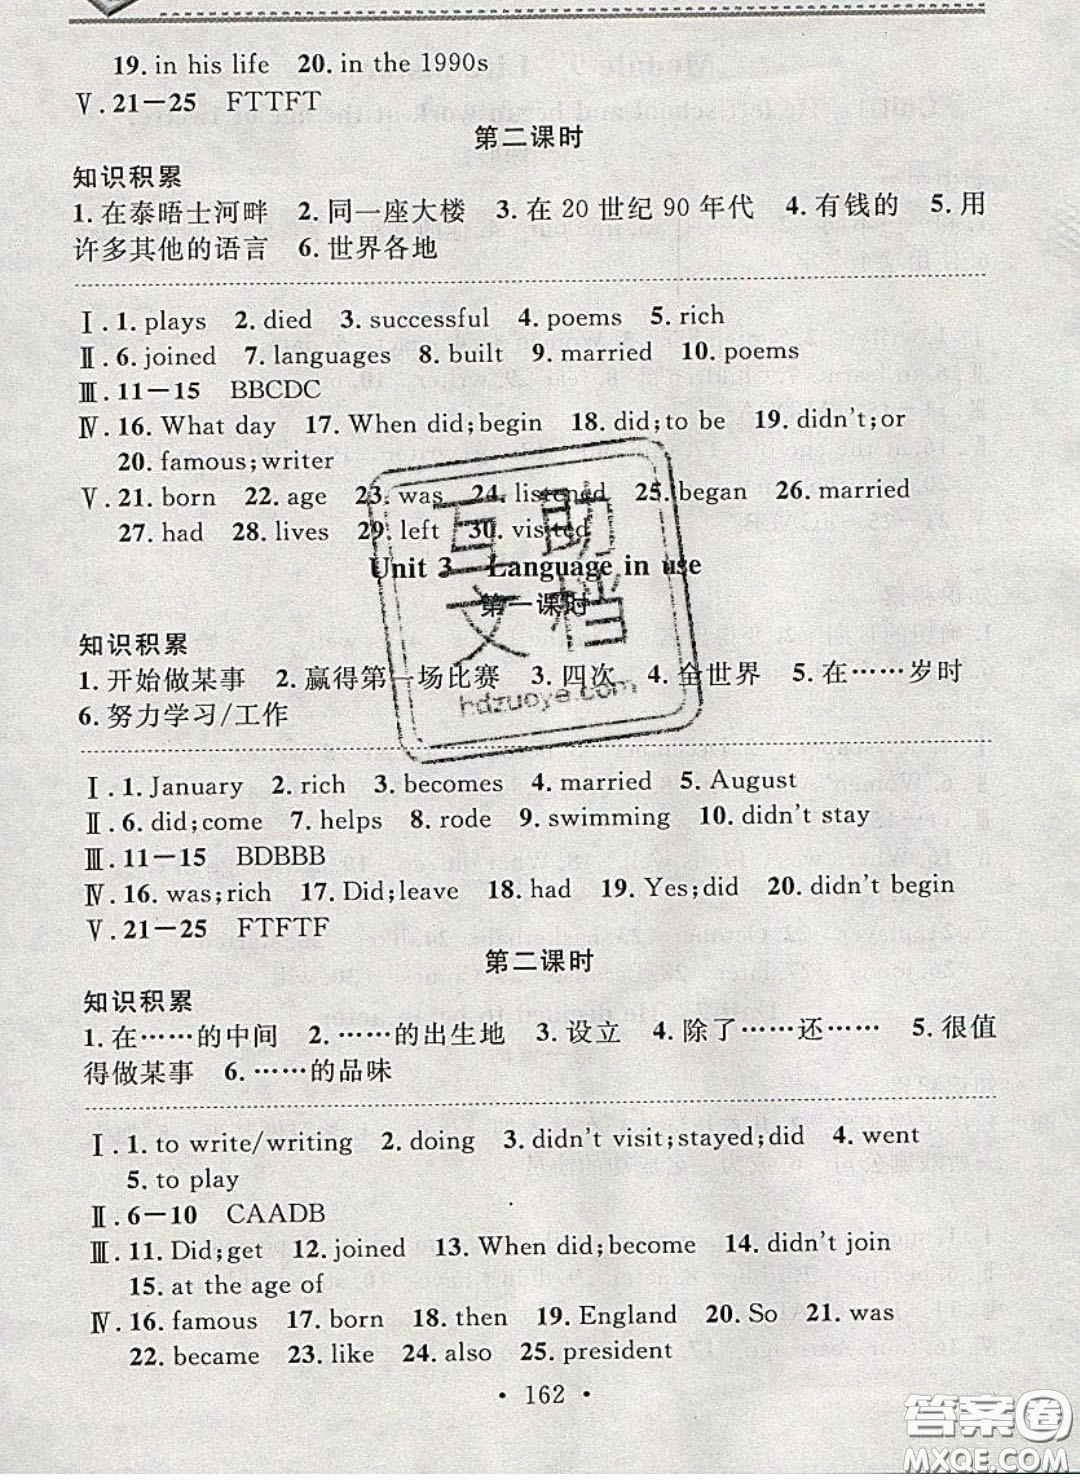 19. in his life 20. in the 1990s
Ⅴ. 21－25 FTTFT
第二课时
知识积累
1. 在泰晤士河畔 2. 同一座大楼 3. 在 20 世纪 90 年代 4. 有钱的 5. 用
许多其他的语言 6. 世界各地
Ⅰ. 1. plays 2. died 3. successful 4. poems 5. rich
Ⅱ. 6. joined 7. languages 8. built 9. married 10. poems
Ⅲ. 11－15 BBCDC
Ⅳ. 16. What day 17. When did;begin 18. did;to be 19. didn't;or
20. famous;writer
Ⅴ. 21. born 22. age 23. was 24. listened 25. began 26. married
27. had 28. lives 29. left 30. visited
Unit 3 Language in use
第一课时
知识积累
1. 开始做某事 2. 赢得第一场比赛 3. 四次 4. 全世界 5. 在……岁时
6. 努力学习/工作
Ⅰ. 1. January 2. rich 3. becomes 4. married 5. August
Ⅱ. 6. did;come 7. helps 8. rode 9. swimming 10. didn't stay
Ⅲ. 11－15 BDBBB
Ⅳ. 16. was;rich 17. Did;leave 18. had 19. Yes;did 20. didn't begin
Ⅴ. 21－25 FTFTF
第二课时
知识积累
1. 在……的中间 2. ……的出生地 3. 设立 4. 除了……还…… 5. 很值
得做某事 6. ……的品味
Ⅰ. 1. to write/writing 2. doing 3. didn't visit;stayed;did 4. went
5. to play
Ⅱ. 6－10 CAADB
Ⅲ. 11. Did;get 12. joined 13. When did;become 14. didn't join
15. at the age of
Ⅳ. 16. famous 17. born 18. then 19. England 20. So 21. was
22. became 23. like 24. also 25. president
· 162 ·
互助
文档
hdzuoye.com
答案圈
MXQE.COM